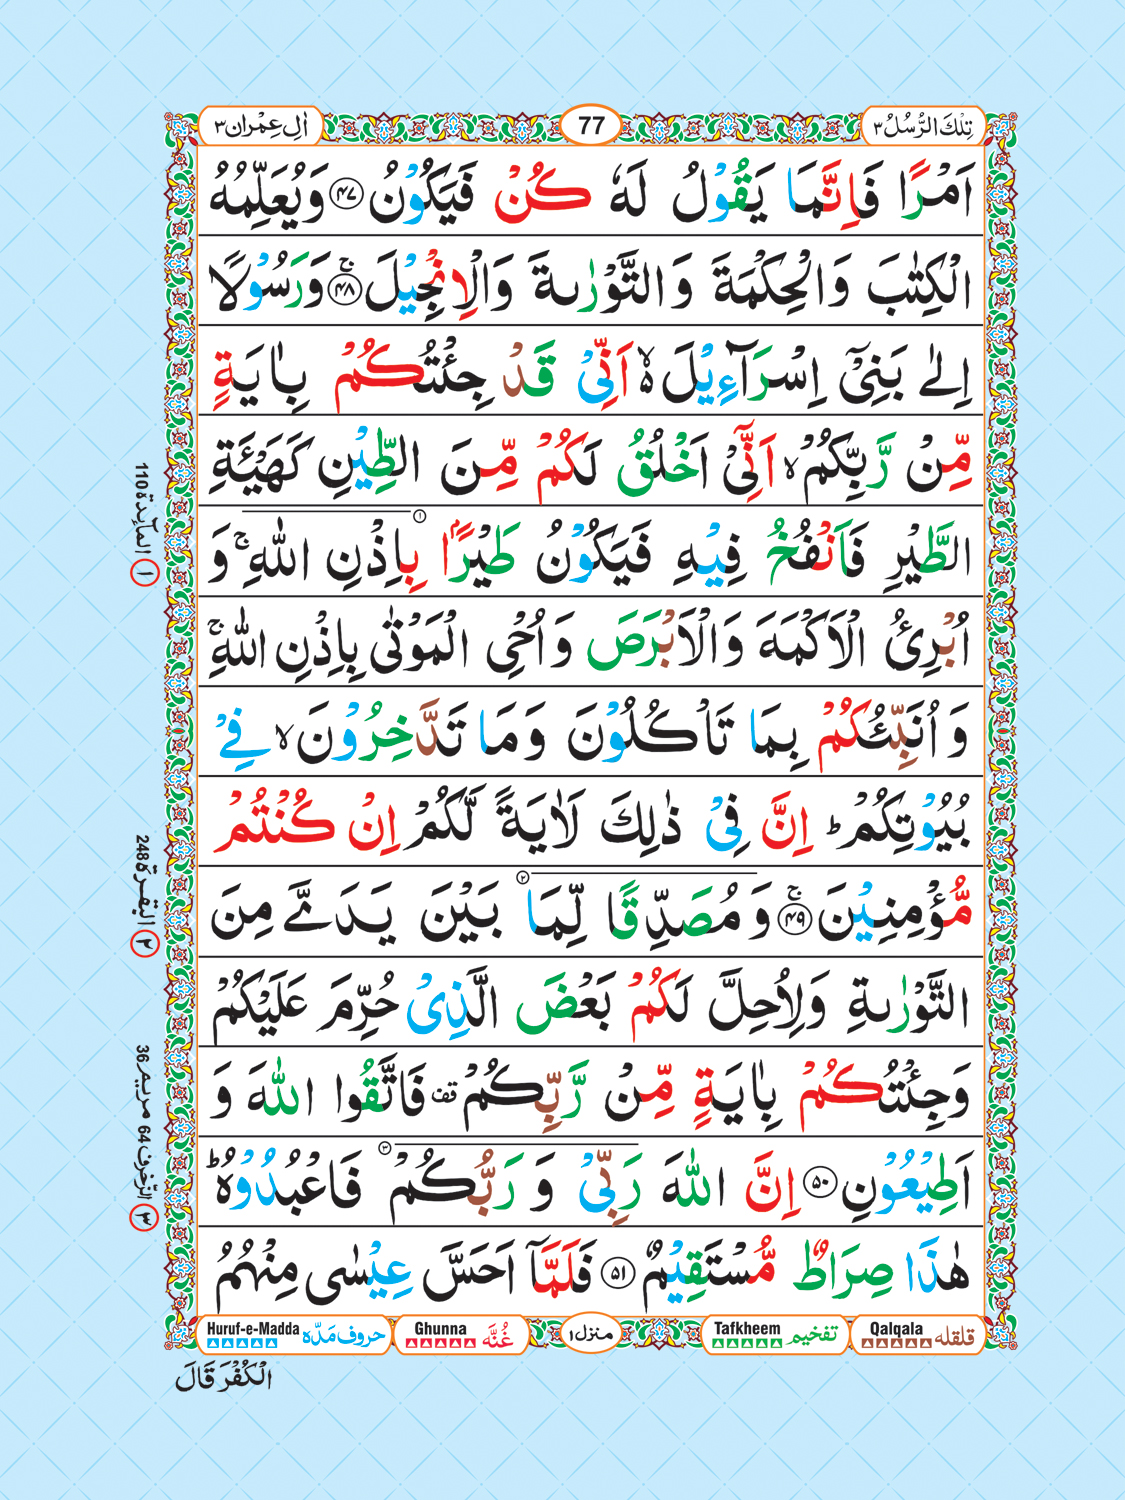 تِلْكَ الرُّسُلُ ٣
77
اٰلِ عِمْرٰن ٣
اَمْرًا فَاِنَّمَا يَقُوْلُ لَهٗ كُنْ فَيَكُوْنُ ﴿۴۷﴾ وَيُعَلِّمُهُ
الْكِتٰبَ وَالْحِكْمَةَ وَالتَّوْرٰىةَ وَالْاِنْجِيْلَ ۚ﴿۴۸﴾ وَرَسُوْلًا
اِلٰى بَنِيْٓ اِسْرَآءِيْلَ ۙ اَنِّيْ قَدْ جِئْتُكُمْ بِاٰيَةٍ
مِّنْ رَّبِّكُمْ ۙ اَنِّيْٓ اَخْلُقُ لَكُمْ مِّنَ الطِّيْنِ كَهَيْئَةِ
الطَّيْرِ فَاَنْفُخُ فِيْهِ فَيَكُوْنُ طَيْرًۢا بِاِذْنِ اللّٰهِ ۚ وَ
اُبْرِئُ الْاَكْمَهَ وَالْاَبْرَصَ وَاُحْيِ الْمَوْتٰى بِاِذْنِ اللّٰهِ ۚ
وَاُنَبِّئُكُمْ بِمَا تَاْكُلُوْنَ وَمَا تَدَّخِرُوْنَ ۙ فِيْ
بُيُوْتِكُمْ ؕ اِنَّ فِيْ ذٰلِكَ لَاٰيَةً لَّكُمْ اِنْ كُنْتُمْ
مُّؤْمِنِيْنَ ۚ﴿۴۹﴾ وَمُصَدِّقًا لِّمَا بَيْنَ يَدَيَّ مِنَ
التَّوْرٰىةِ وَلِاُحِلَّ لَكُمْ بَعْضَ الَّذِيْ حُرِّمَ عَلَيْكُمْ
وَجِئْتُكُمْ بِاٰيَةٍ مِّنْ رَّبِّكُمْ قف فَاتَّقُوا اللّٰهَ وَ
اَطِيْعُوْنِ ﴿۵۰﴾ اِنَّ اللّٰهَ رَبِّيْ وَرَبُّكُمْ فَاعْبُدُوْهُ ؕ
هٰذَا صِرَاطٌ مُّسْتَقِيْمٌ ﴿۵۱﴾ فَلَمَّآ اَحَسَّ عِيْسٰى مِنْهُمُ
۱ المآىِٕدة 110
۲ البقرة 248
۳ الزّخرف 64 مريم 36
قلقله Qalqala
تفخيم Tafkheem
منزل ١
غُنَّه Ghunna
حروف مَدّه Huruf-e-Madda
الْكُفْرَ قَالَ